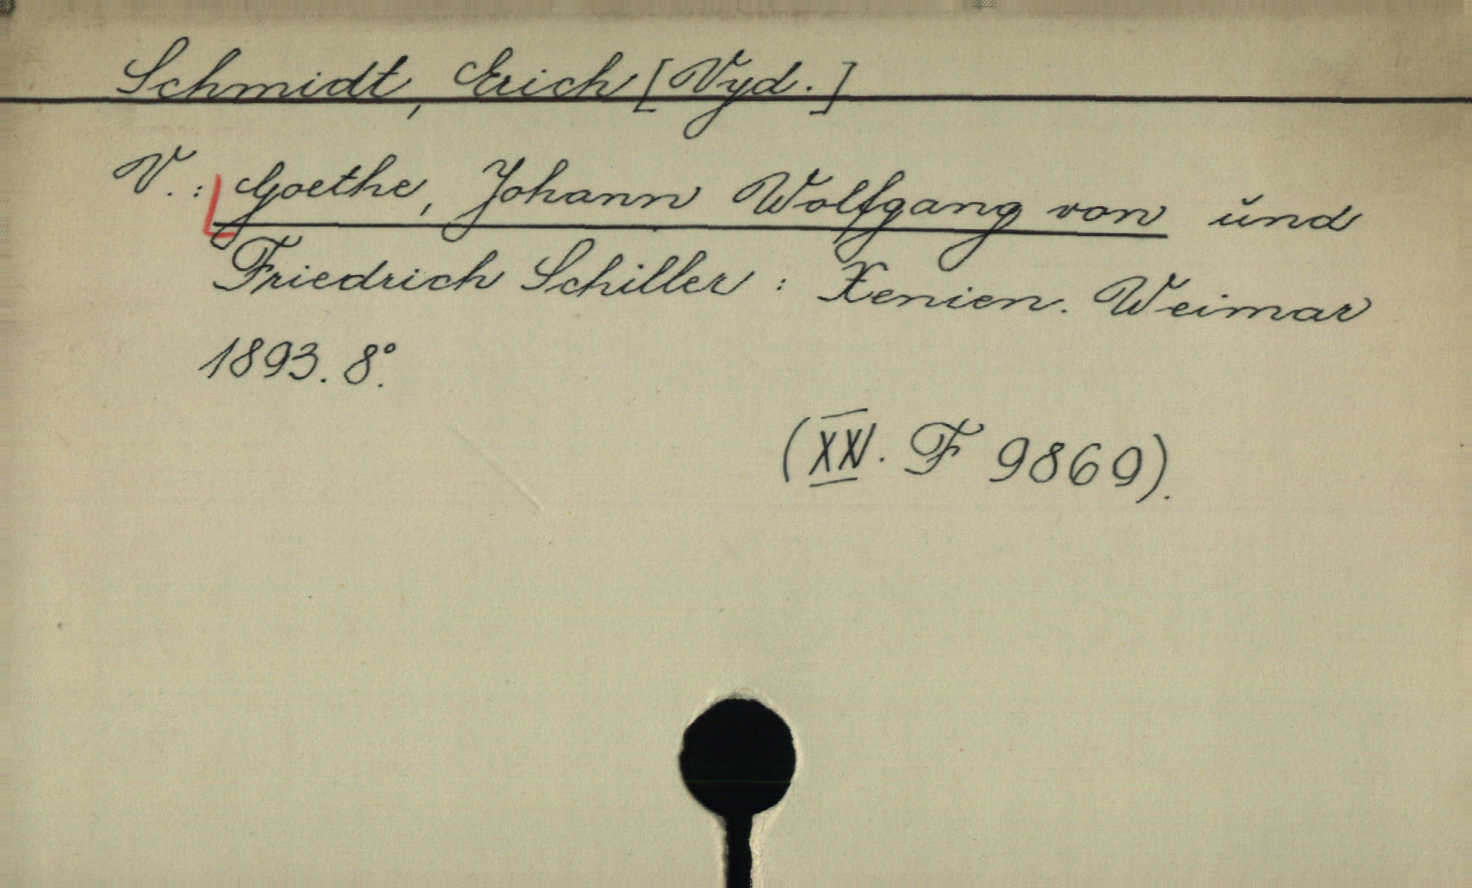 Schmidt, Erich [Vyd.]
V.: Goethe, Johann Wolfgang von und
Friedrich Schiller: Xenien. Weimar
1893. 8°.
(XIV. F 9869).